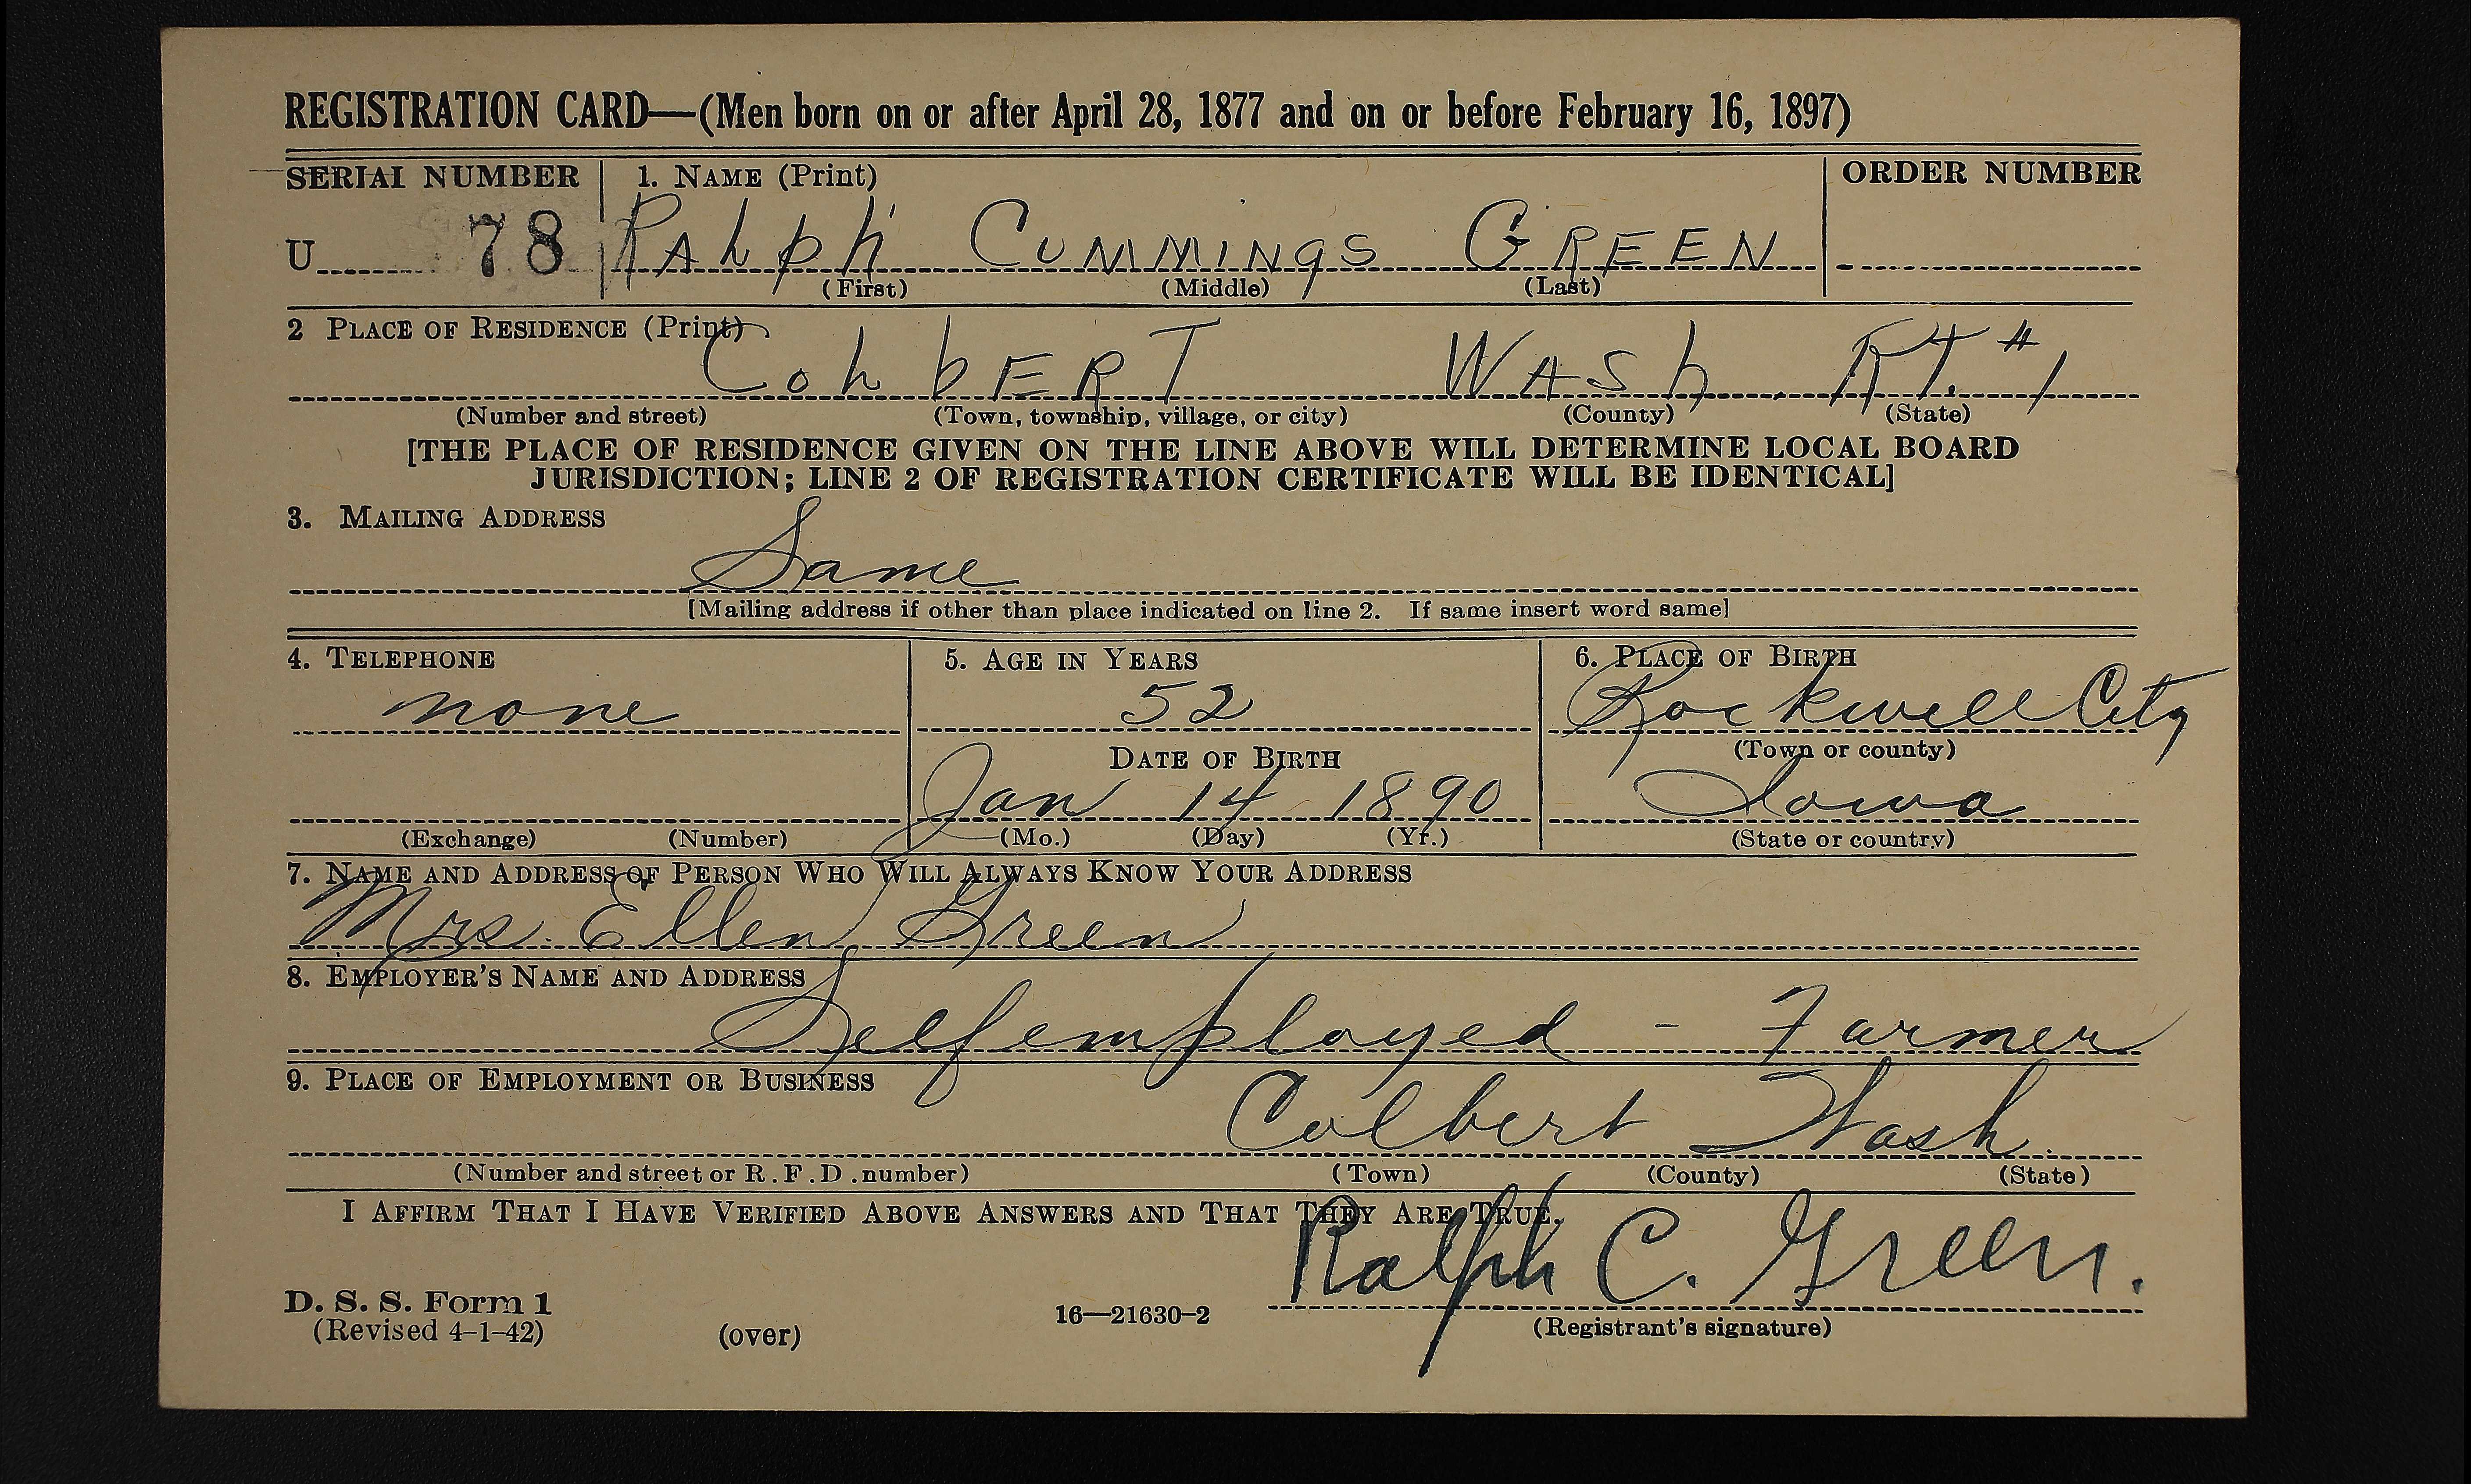 REGISTRATION CARD—(Men born on or after April 28, 1877 and on or before February 16, 1897)
SERIAL NUMBER 1. NAME (Print) ORDER NUMBER
U 78 RALph CUMMINgS GREEN
(First) (Middle) (Last)
2 PLACE OF RESIDENCE (Print)
ColbERT WASh. RT. #1
(Number and street) (Town, township, village, or city) (County) (State)
[THE PLACE OF RESIDENCE GIVEN ON THE LINE ABOVE WILL DETERMINE LOCAL BOARD
JURISDICTION; LINE 2 OF REGISTRATION CERTIFICATE WILL BE IDENTICAL]
3. MAILING ADDRESS
Same
[Mailing address if other than place indicated on line 2. If same insert word same]
4. TELEPHONE 5. AGE IN YEARS 6. PLACE OF BIRTH
none 52 Rockwell City
DATE OF BIRTH (Town or county)
Jan 14 1890 Iowa
(Exchange) (Number) (Mo.) (Day) (Yr.) (State or country)
7. NAME AND ADDRESS OF PERSON WHO WILL ALWAYS KNOW YOUR ADDRESS
Mrs. Ellen Green
8. EMPLOYER'S NAME AND ADDRESS
Self employed - Farmer
9. PLACE OF EMPLOYMENT OR BUSINESS
Colbert Wash.
(Number and street or R.F.D. number) (Town) (County) (State)
I AFFIRM THAT I HAVE VERIFIED ABOVE ANSWERS AND THAT THEY ARE TRUE.
Ralph C. Green.
D. S. S. Form 1
(Revised 4-1-42) (over) 16—21630-2 (Registrant's signature)